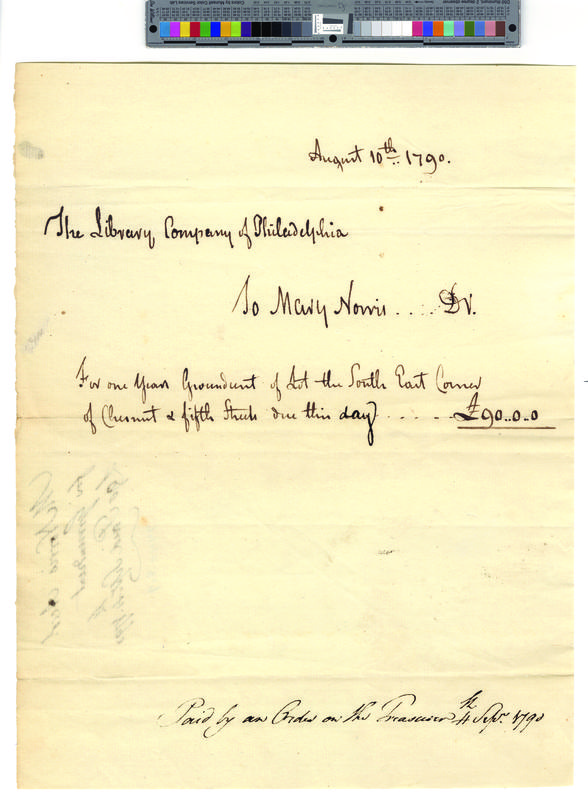 August 10th 1790.
The Library Company of Philadelphia
To Mary Norris .... Dr.
For one Years Groundrent of Lot the South East Corner
of Chesnut & fifth Streets due this day ..... £90..0..0
Paid by an Order on the Treasurer 4 Sepr. 1790